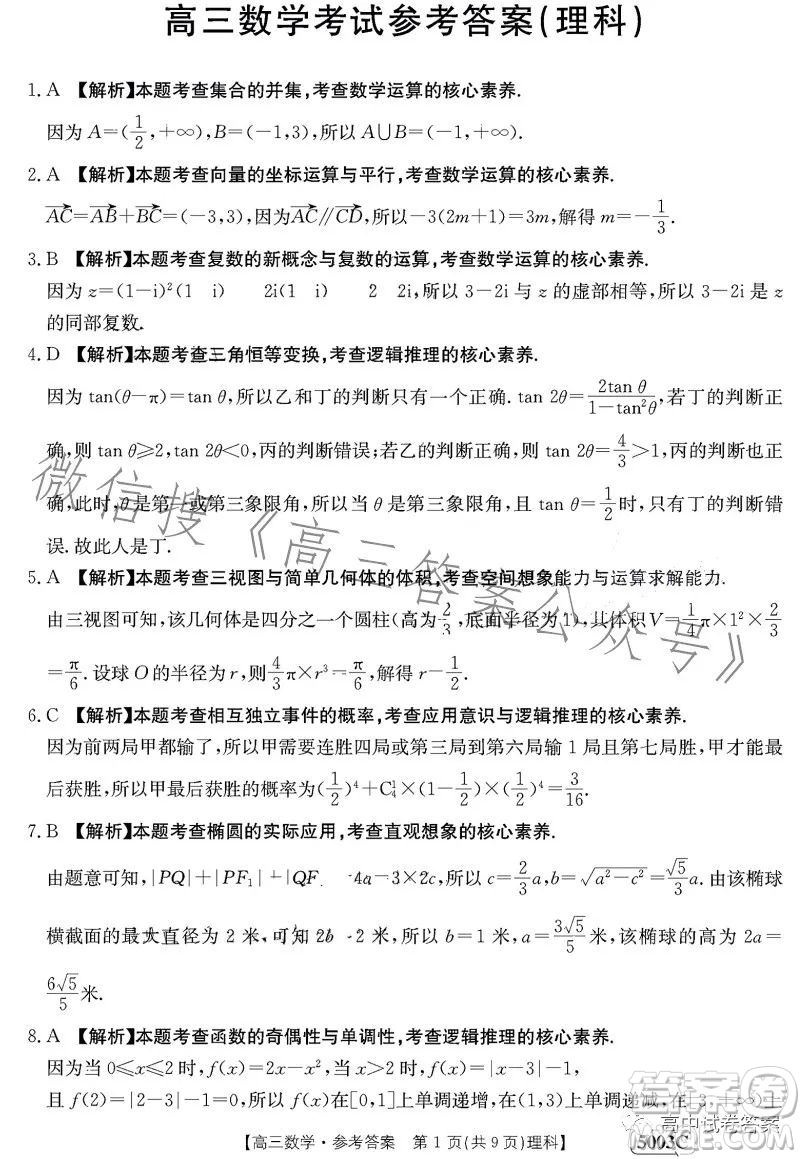 高三数学考试参考答案(理科)
1. A 【解析】本题考查集合的并集,考查数学运算的核心素养.
因为 A=(1/2,+∞),B=(-1,3),所以 A∪B=(-1,+∞).
2. A 【解析】本题考查向量的坐标运算与平行,考查数学运算的核心素养.
AC=AB+BC=(-3,3),因为AC∥CD,所以-3(2m+1)=3m,解得 m=-1/3.
3. B 【解析】本题考查复数的新概念与复数的运算,考查数学运算的核心素养.
因为 z=(1-i)²(1 i) 2i(1 i) 2 2i,所以 3-2i 与 z 的虚部相等,所以 3-2i 是 z
的同部复数.
4. D 【解析】本题考查三角恒等变换,考查逻辑推理的核心素养.
因为 tan(θ-π)=tan θ,所以乙和丁的判断只有一个正确. tan 2θ=2tan θ/(1-tan²θ),若丁的判断正
确,则 tan θ≥2,tan 2θ<0,丙的判断错误;若乙的判断正确,则 tan 2θ=4/3>1,丙的判断也正
确,此时,θ 是第一或第三象限角,所以当 θ 是第三象限角,且 tan θ=1/2 时,只有丁的判断错
误.故此人是丁.
5. A 【解析】本题考查三视图与简单几何体的体积,考查空间想象能力与运算求解能力.
由三视图可知,该几何体是四分之一个圆柱(高为 2/3,底面半径为 1),其体积 V=1/4π×1²×2/3
=π/6. 设球 O 的半径为 r,则4/3π×r³-π/6,解得 r-1/2.
6. C 【解析】本题考查相互独立事件的概率,考查应用意识与逻辑推理的核心素养.
因为前两局甲都输了,所以甲需要连胜四局或第三局到第六局输 1 局且第七局胜,甲才能最
后获胜,所以甲最后获胜的概率为(1/2)⁴+C¹₄(1-1/2)×(1/2)⁴=3/16.
7. B 【解析】本题考查椭圆的实际应用,考查直观想象的核心素养.
由题意可知,|PQ|+|PF₁|+|QF. -4a-3×2c,所以 c=2/3a,b=√(a²-c²)=√5/3a. 由该椭球
横截面的最大直径为 2 米,可知 2b -2 米,所以 b=1 米,a=3√5/5米,该椭球的高为 2a=
6√5/5米.
8. A 【解析】本题考查函数的奇偶性与单调性,考查逻辑推理的核心素养.
因为当 0≤x≤2 时,f(x)=2x-x²,当 x>2 时,f(x)=|x-3|-1,
且 f(2)=|2-3|-1=0,所以 f(x)在[0,1]上单调递增,在(1,3)上单调递减,在[3,+∞)上
【高三数学·参考答案 第 1 页(共 9 页)理科】
5003C
微信搜《高三答案公众号》
答案圈
高中试卷答案